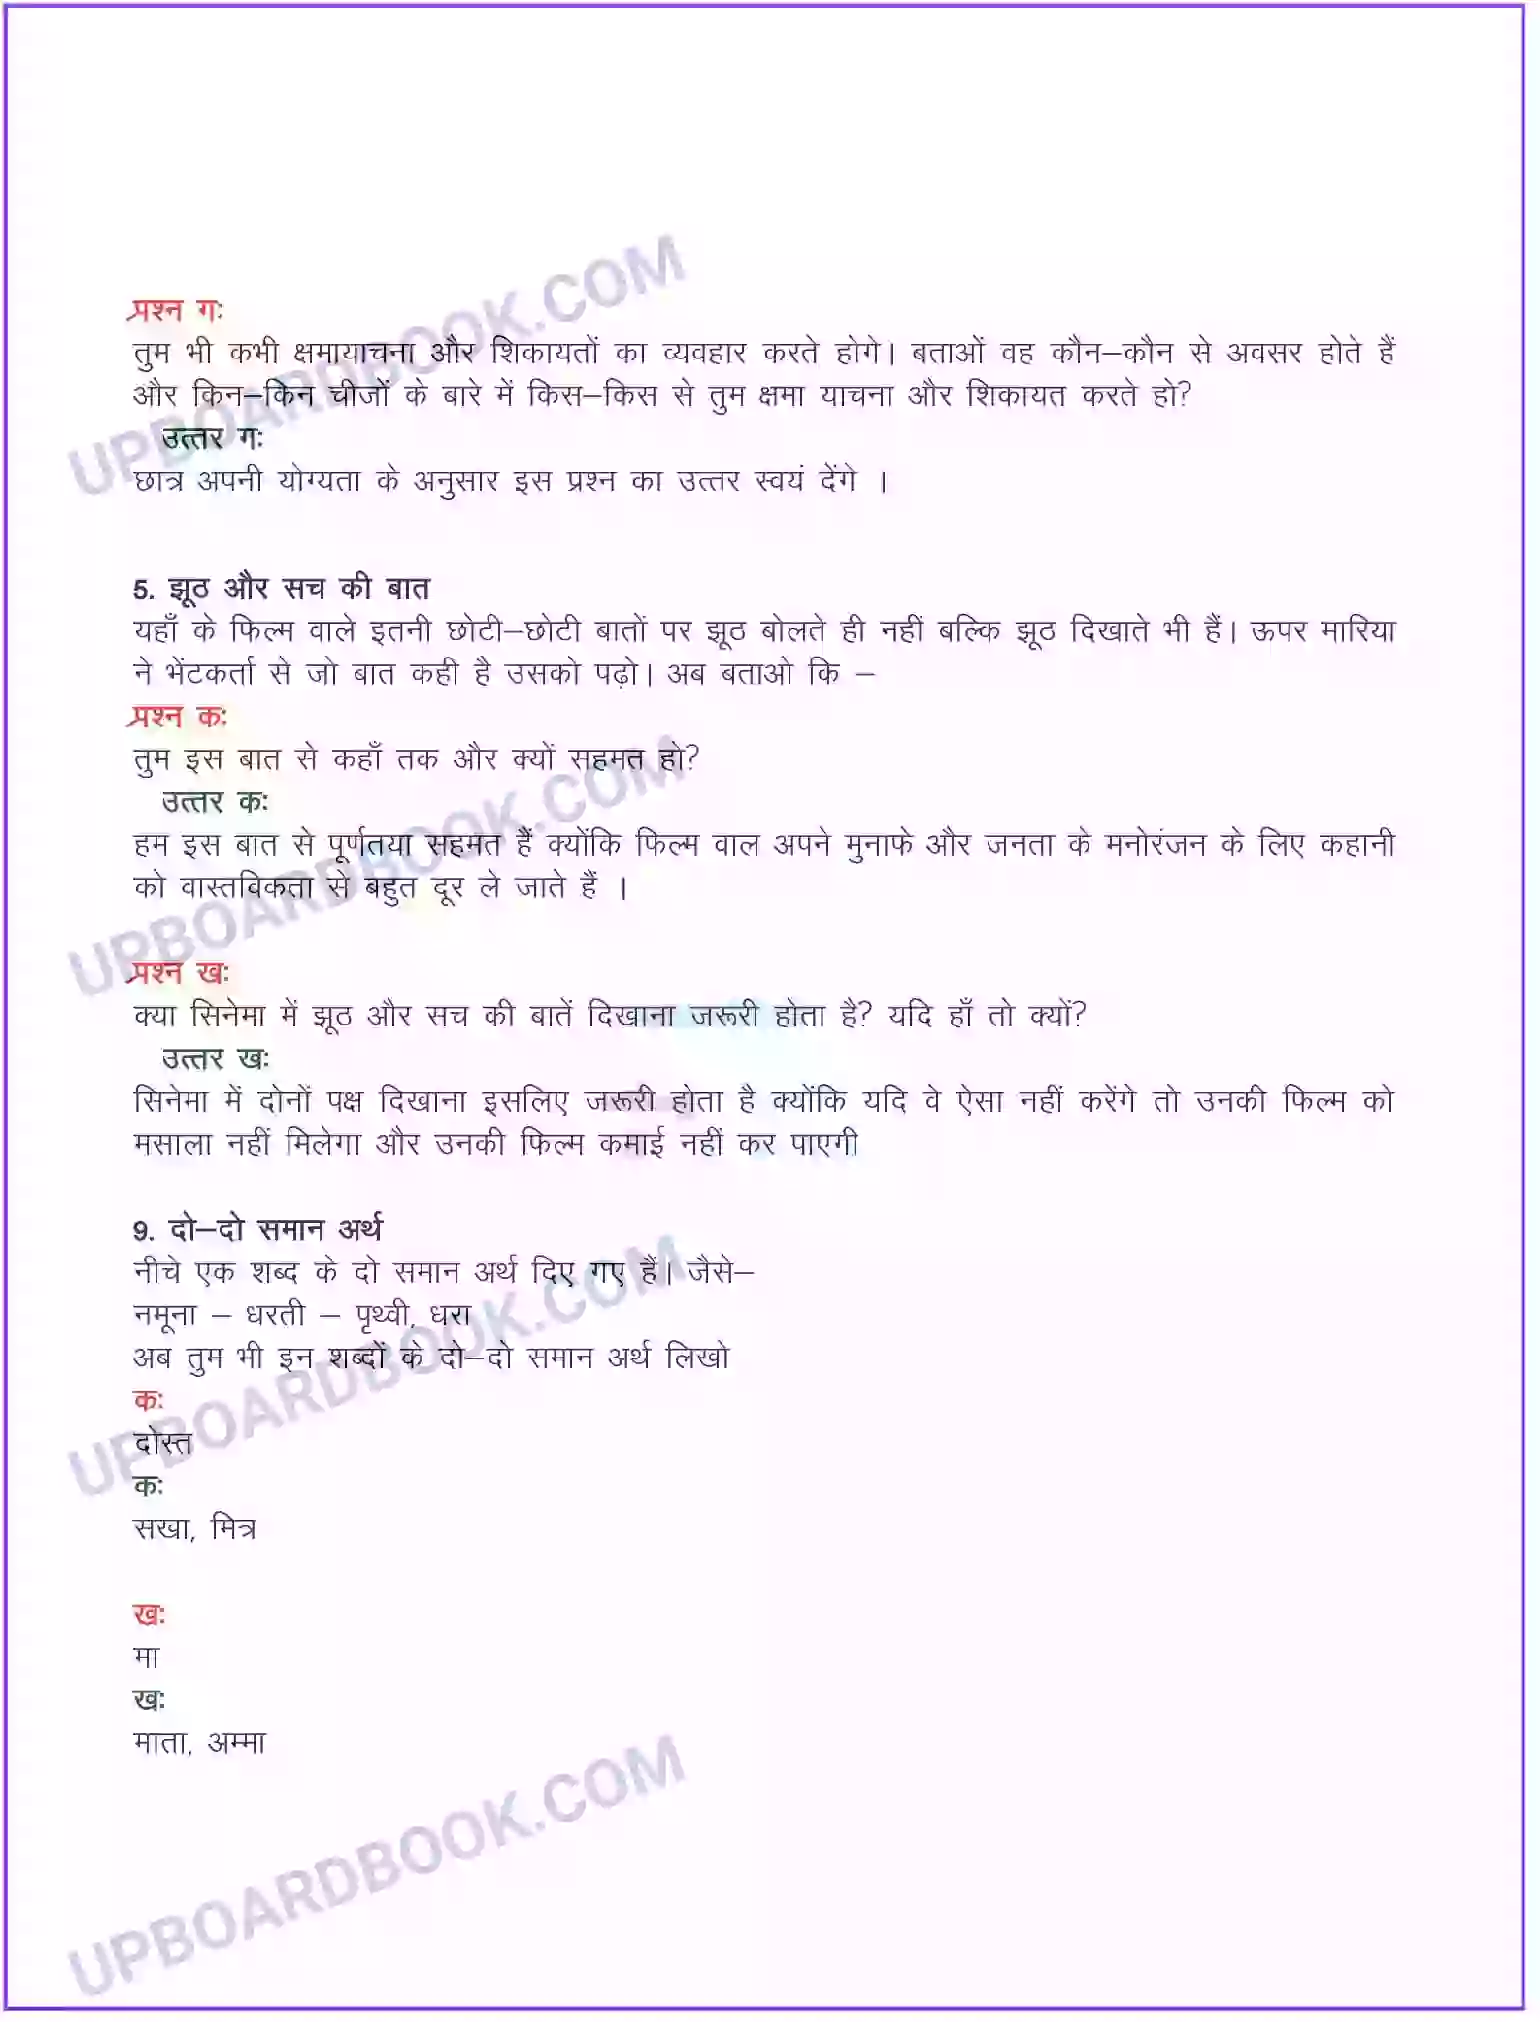 प्रश्न गः
तुम भी कभी क्षमायाचना और शिकायतों का व्यवहार करते होगे। बताओं वह कौन–कौन से अवसर होते हैं
और किन–किन चीजों के बारे में किस–किस से तुम क्षमा याचना और शिकायत करते हो?
उत्तर गः
छात्र अपनी योग्यता के अनुसार इस प्रश्न का उत्तर स्वयं देंगे ।
5. झूठ और सच की बात
यहाँ के फिल्म वाले इतनी छोटी–छोटी बातों पर झूठ बोलते ही नहीं बल्कि झूठ दिखाते भी हैं। ऊपर मारिया
ने भेंटकर्ता से जो बात कही है उसको पढ़ो। अब बताओ कि –
प्रश्न कः
तुम इस बात से कहाँ तक और क्यों सहमत हो?
उत्तर कः
हम इस बात से पूर्णतया सहमत हैं क्योंकि फिल्म वाल अपने मुनाफे और जनता के मनोरंजन के लिए कहानी
को वास्तविकता से बहुत दूर ले जाते हैं ।
प्रश्न खः
क्या सिनेमा में झूठ और सच की बातें दिखाना जरूरी होता है? यदि हाँ तो क्यों?
उत्तर खः
सिनेमा में दोनों पक्ष दिखाना इसलिए जरूरी होता है क्योंकि यदि वे ऐसा नहीं करेंगे तो उनकी फिल्म को
मसाला नहीं मिलेगा और उनकी फिल्म कमाई नहीं कर पाएगी
9. दो–दो समान अर्थ
नीचे एक शब्द के दो समान अर्थ दिए गए हैं। जैसे–
नमूना – धरती – पृथ्वी, धरा
अब तुम भी इन शब्दों के दो–दो समान अर्थ लिखो
कः
दोस्त
कः
सखा, मित्र
खः
मा
खः
माता, अम्मा
UPBOARDBOOK.COM
UPBOARDBOOK.COM
UPBOARDBOOK.COM
UPBOARDBOOK.COM